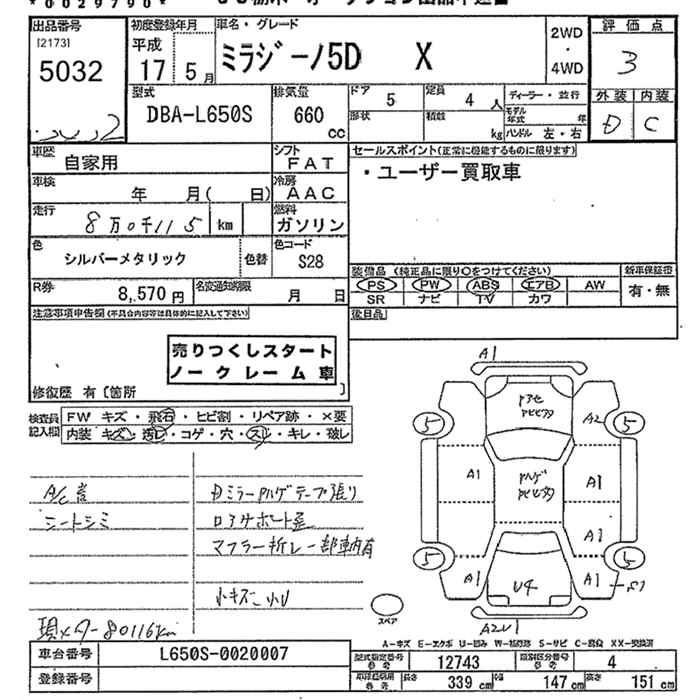 *0029790*
出品番号 初度登録年月 車名・グレード 評価点
[2173] 平成 ミラジーノ5D X 2WD ・ 4WD 3
5032 17年 5月
型式 排気量 ドア 5 定員 4人 ディーラー・並行 外装 内装
DBA-L650S 660 cc 形状 積数 kg モデル年式 年 D C
ハンドル 左・右
車歴 自家用 シフト FAT セールスポイント(正常に機能するものに限ります)
車検 年 月( 日) 冷房 AAC ・ユーザー買取車
走行 8万0千115 km 燃料 ガソリン
色 シルバーメタリック 色替 色コード S28
R券 8,570円 名変通知期限 月 日
装備品 (純正品に限り○をつけてください) 新車保証書
PS PW ABS エアB AW 有・無
SR ナビ TV カワ
注意事項申告欄(不具合内容等は具体的に記入して下さい) 後日品
売りつくしスタート
ノークレーム車
修復歴 有〔箇所 〕
検査員記入欄 FW キズ・飛石・ヒビ割・リペア跡・×要
内装 キズ・汚レ・コゲ・穴・スレ・キレ・破レ
A/C
シートシミ
マフラー折レ一部車内有
小キズ
現メター80116km
A1
5 5
A2
A1 A1
A1
5 5
A1 U4 A1
スペア
A2U1
A-キズ E-エクボ U-凹み W-補修跡 S-サビ C-腐食 XX-交換済
車台番号 L650S-0020007
登録番号
型式指定番号 参考 12743 類別区分番号 参考 4
参考 長さ 339 cm 幅 147 cm 高さ 151 cm